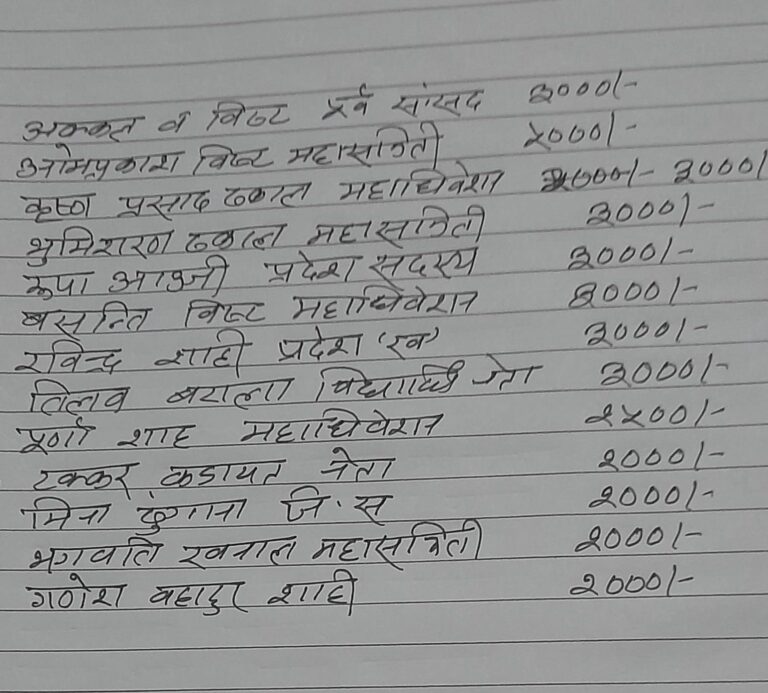 अक्कल व विष्ट पूर्व सांसद ३०००/-
ओमप्रकाश विष्ट महासमिती ५०००/-
कृष्ण प्रसाद ढकाल महाधिवेशन ३०००/
भुमिशरण ढकाल महासमिती ३०००/-
रूपा आउजी प्रदेश सदस्य ३०००/-
बसन्ति विष्ट महाधिवेशन ३०००/-
रविन्द्र शाही प्रदेश 'ख' ३०००/-
तिलव बराला विद्यार्थी नेता ३०००/-
पूर्ण शाह महाधिवेशन २५००/-
टक्कर कडायत नेता २०००/-
मिना ढुंगाना जि.स २०००/-
भगवति खनाल महासमिती २०००/-
गणेश बहादुर शाही २०००/-